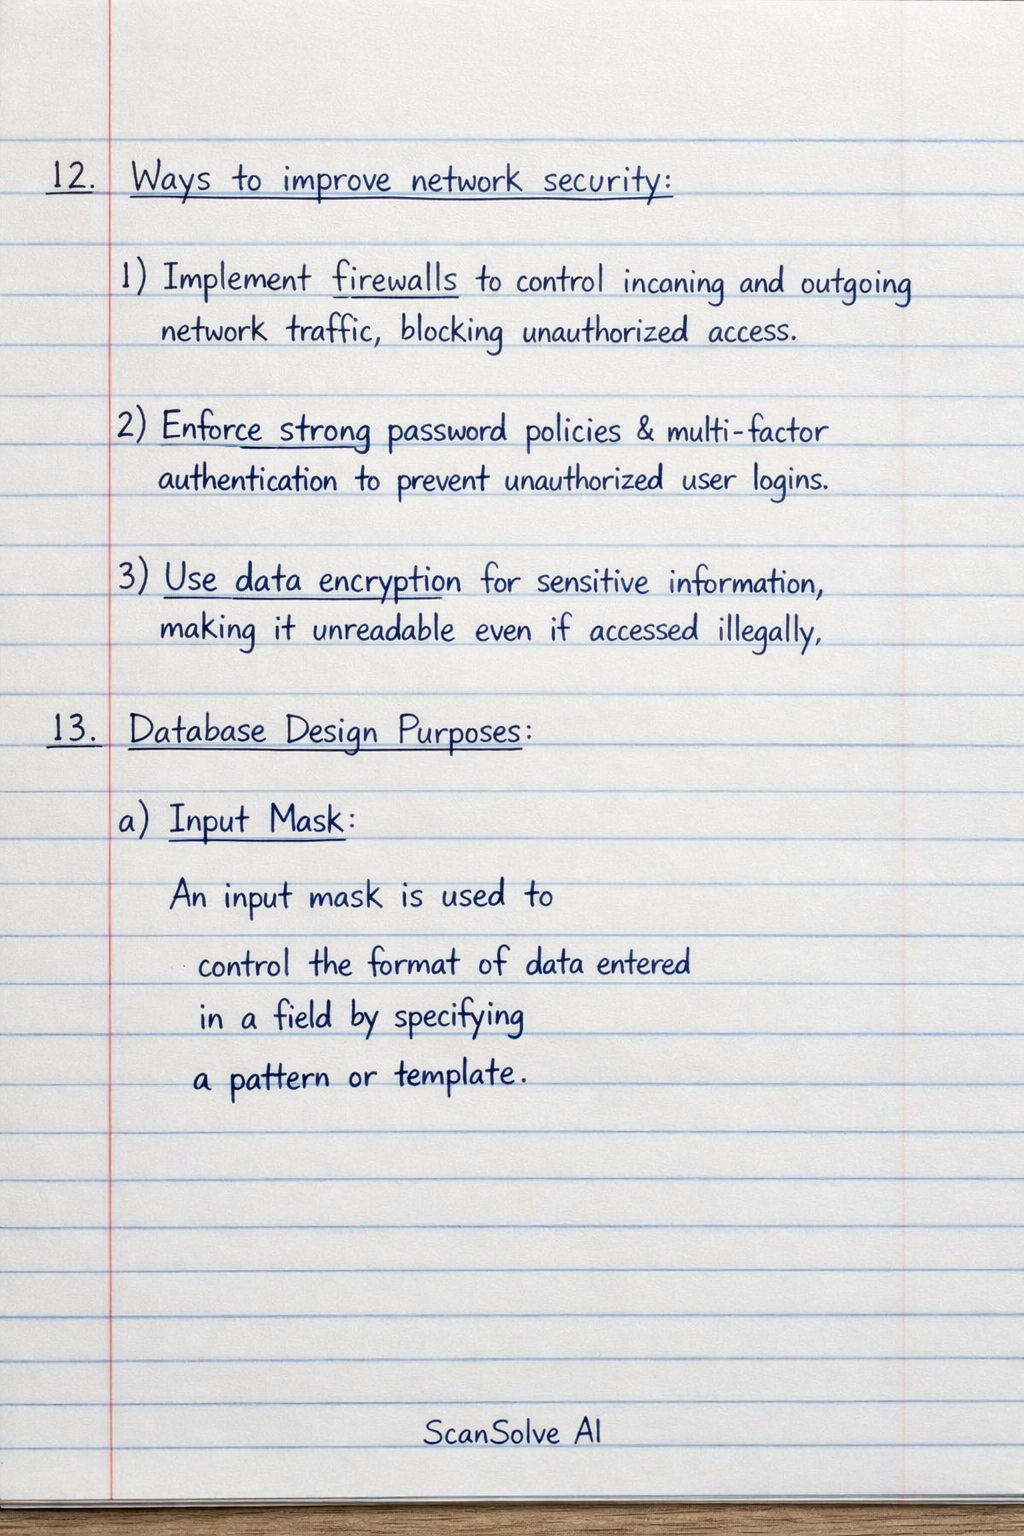 12. Ways to improve network security:
1) Implement firewalls to control incaning and outgoing
network traffic, blocking unauthorized access.
2) Enforce strong password policies & multi-factor
authentication to prevent unauthorized user logins.
3) Use data encryption for sensitive information,
making it unreadable even if accessed illegally,
13. Database Design Purposes:
a) Input Mask:
An input mask is used to
control the format of data entered
in a field by specifying
a pattern or template.
ScanSolve AI